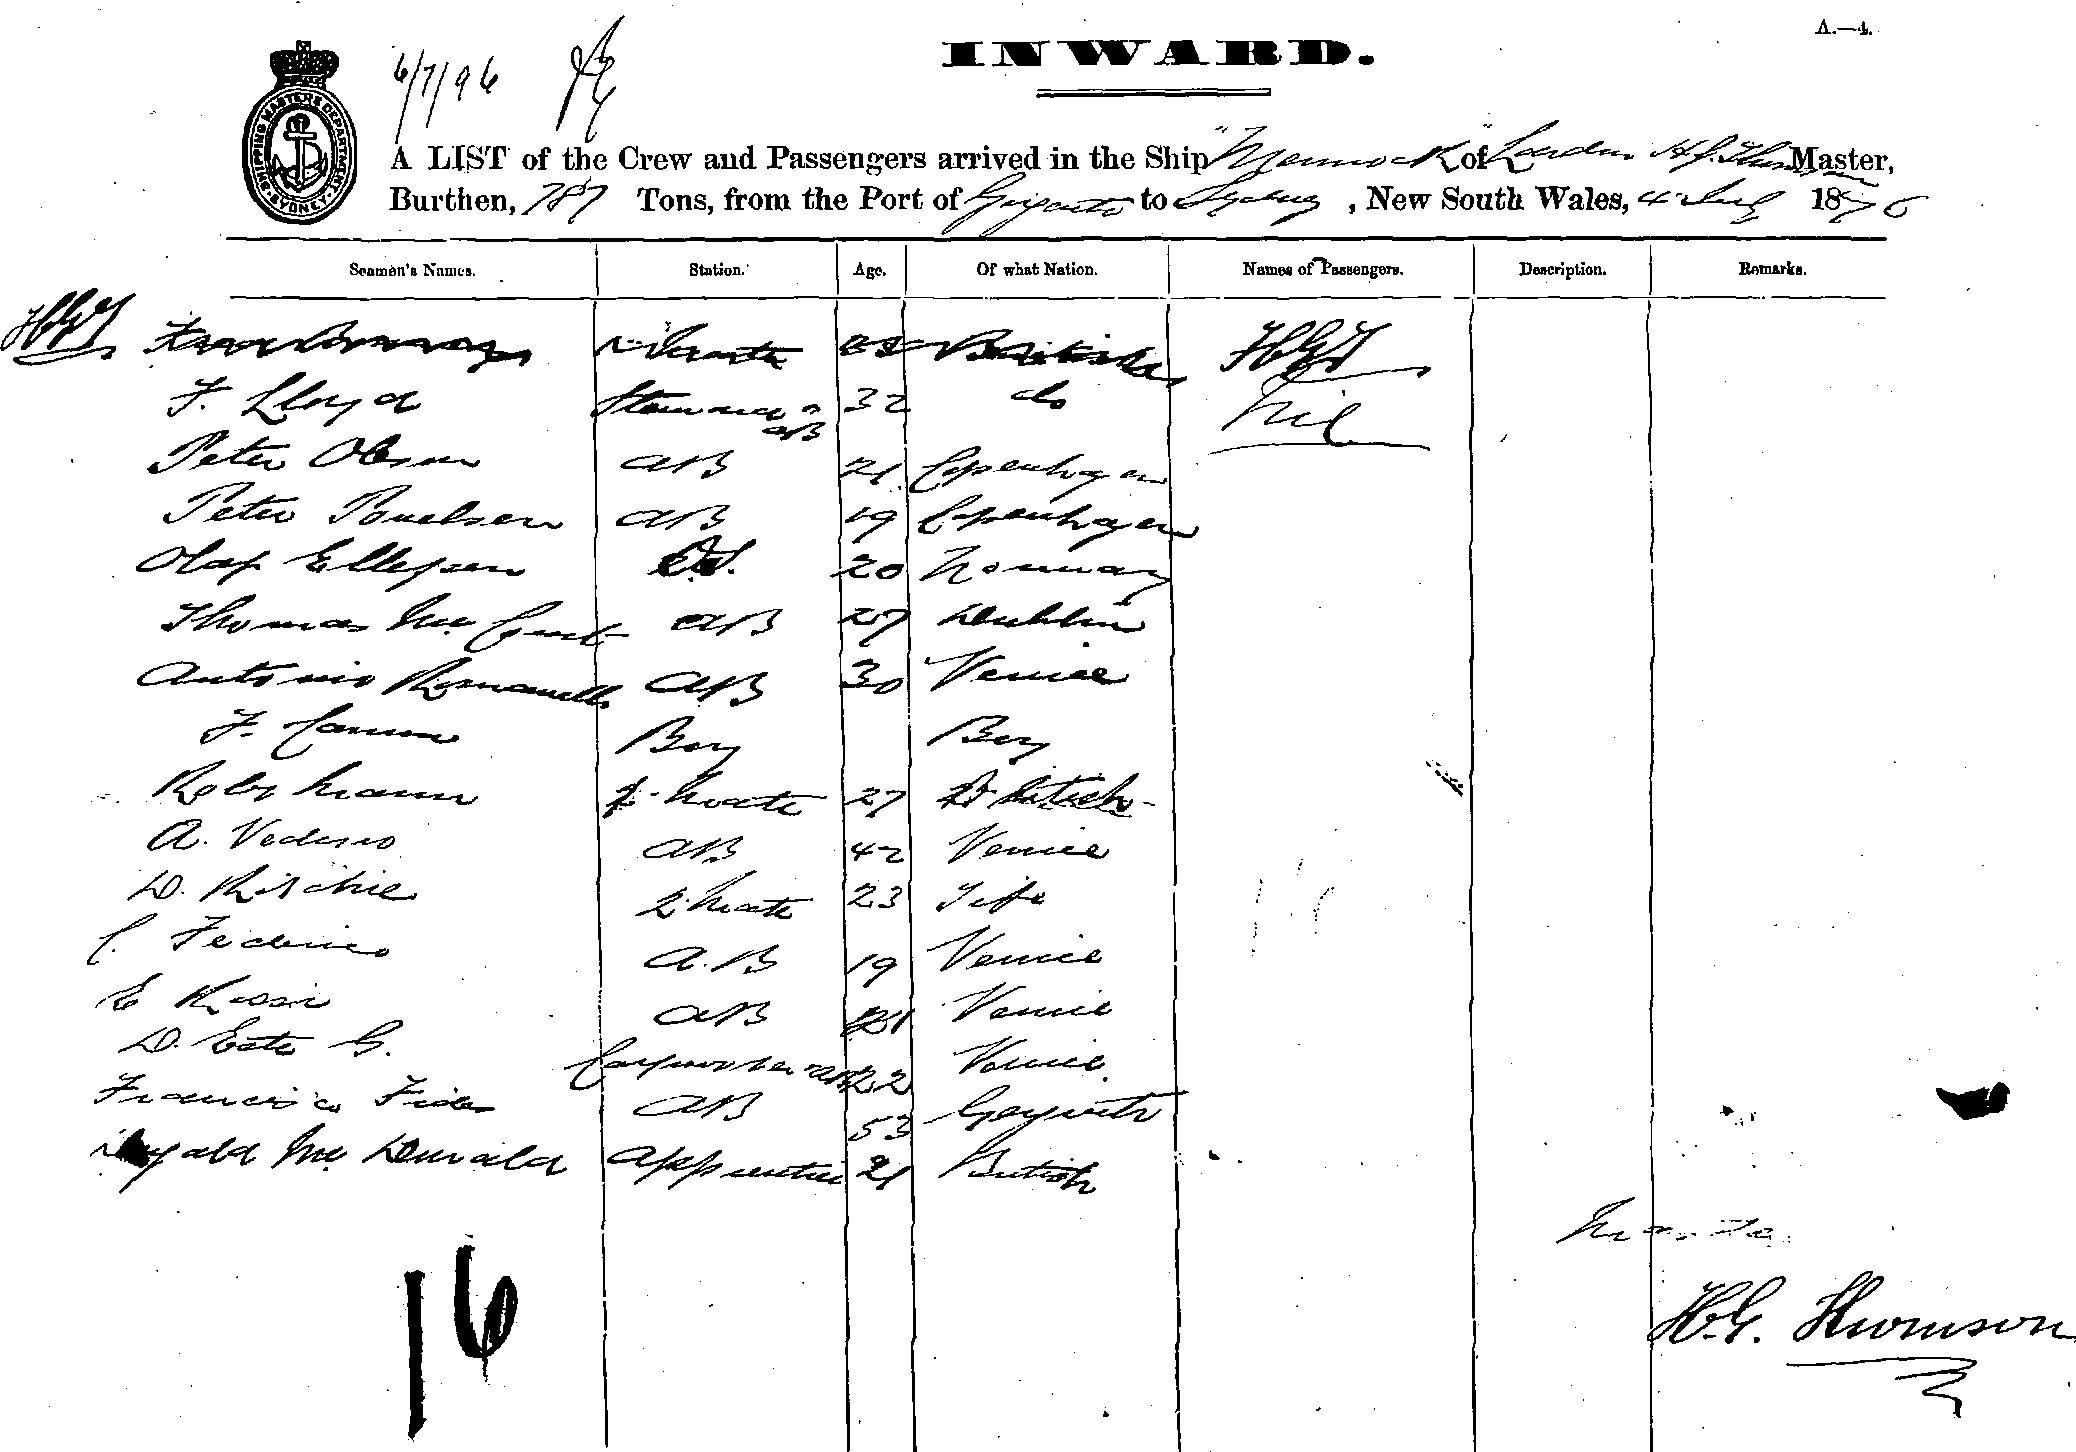 A.—4.
INWARD.
6/7/96
SHIPPING MASTERS DEPARTMENT SYDNEY
A LIST of the Crew and Passengers arrived in the Ship of London Master,
Burthen, 787 Tons, from the Port of to Sydney, New South Wales, 4 July 1876
Seamen's Names. Station. Age. Of what Nation. Names of Passengers. Description. Remarks.
HGT British HGT
F. Lloyd AB 32 do Nil
Peter Olsen AB 21 Copenhagen
Peter Pouelsen AB 19 Copenhagen
Olaf Ellefsen O.S. 20 Norway
Thomas Mc AB 27 Dublin
Antonio Romanelli AB 30 Venice
F. Boy Boy
Robt Mann Mate 27 British
A. AB 42 Venice
D. Ritchie 2 Mate 23 Fife
C. Federico A.B 19 Venice
E Rossi AB 21 Venice
D. Este G. 22 Venice
Francisco AB 53
Mc Donald Apprentice 21 British
16
H.G. Thomson